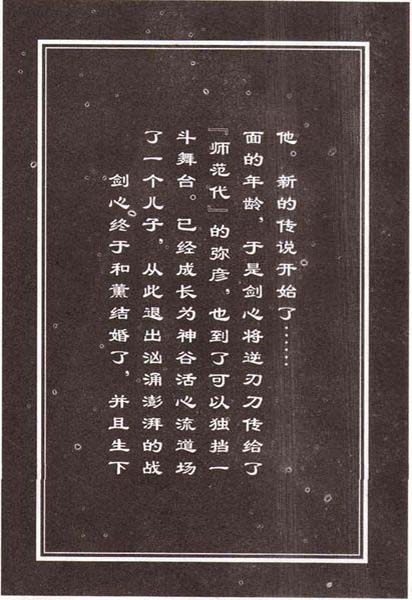 剑心终于和薰结婚了，并且生下
了一个儿子，从此退出汹涌澎湃的战
斗舞台。已经成长为神谷活心流道场
『师范代』的弥彦，也到了可以独挡一
面的年龄，于是剑心将逆刃刀传给了
他。新的传说开始了……